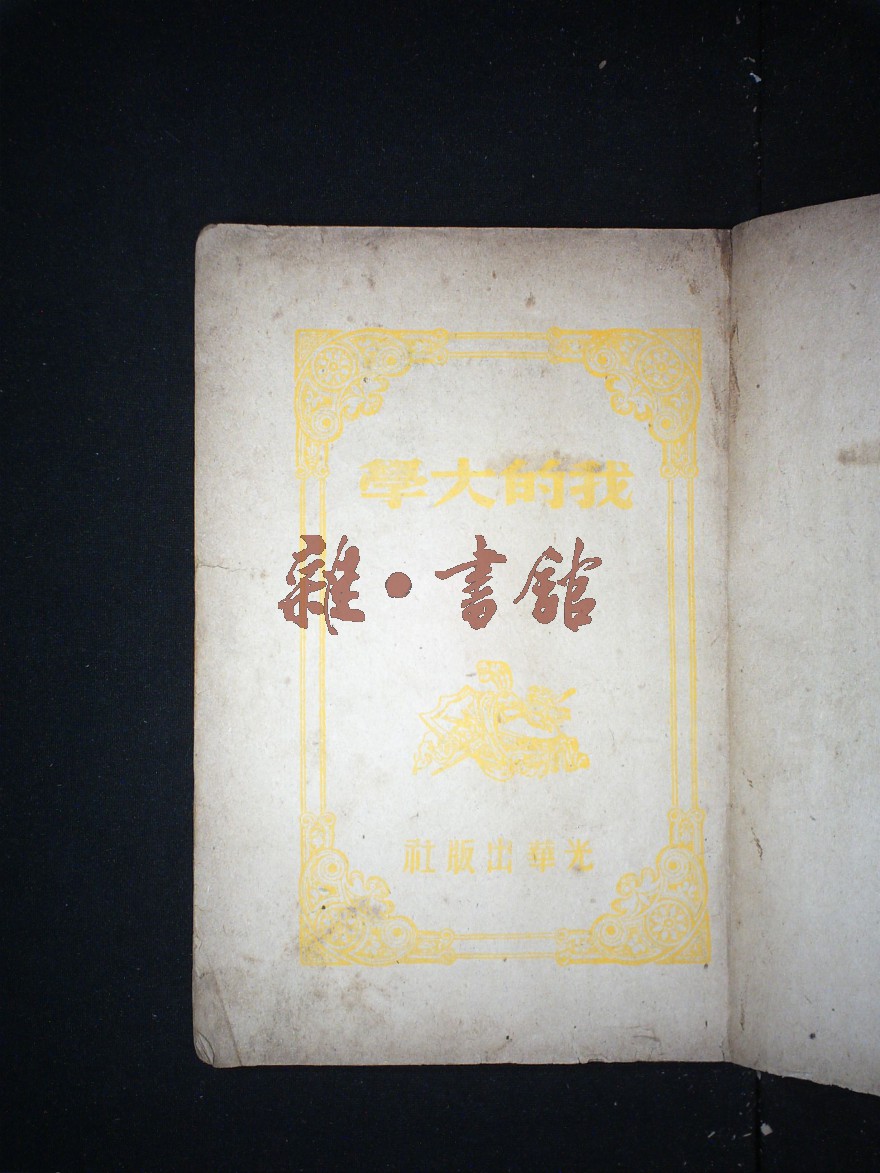 我的大學
雜·書館
光華出版社